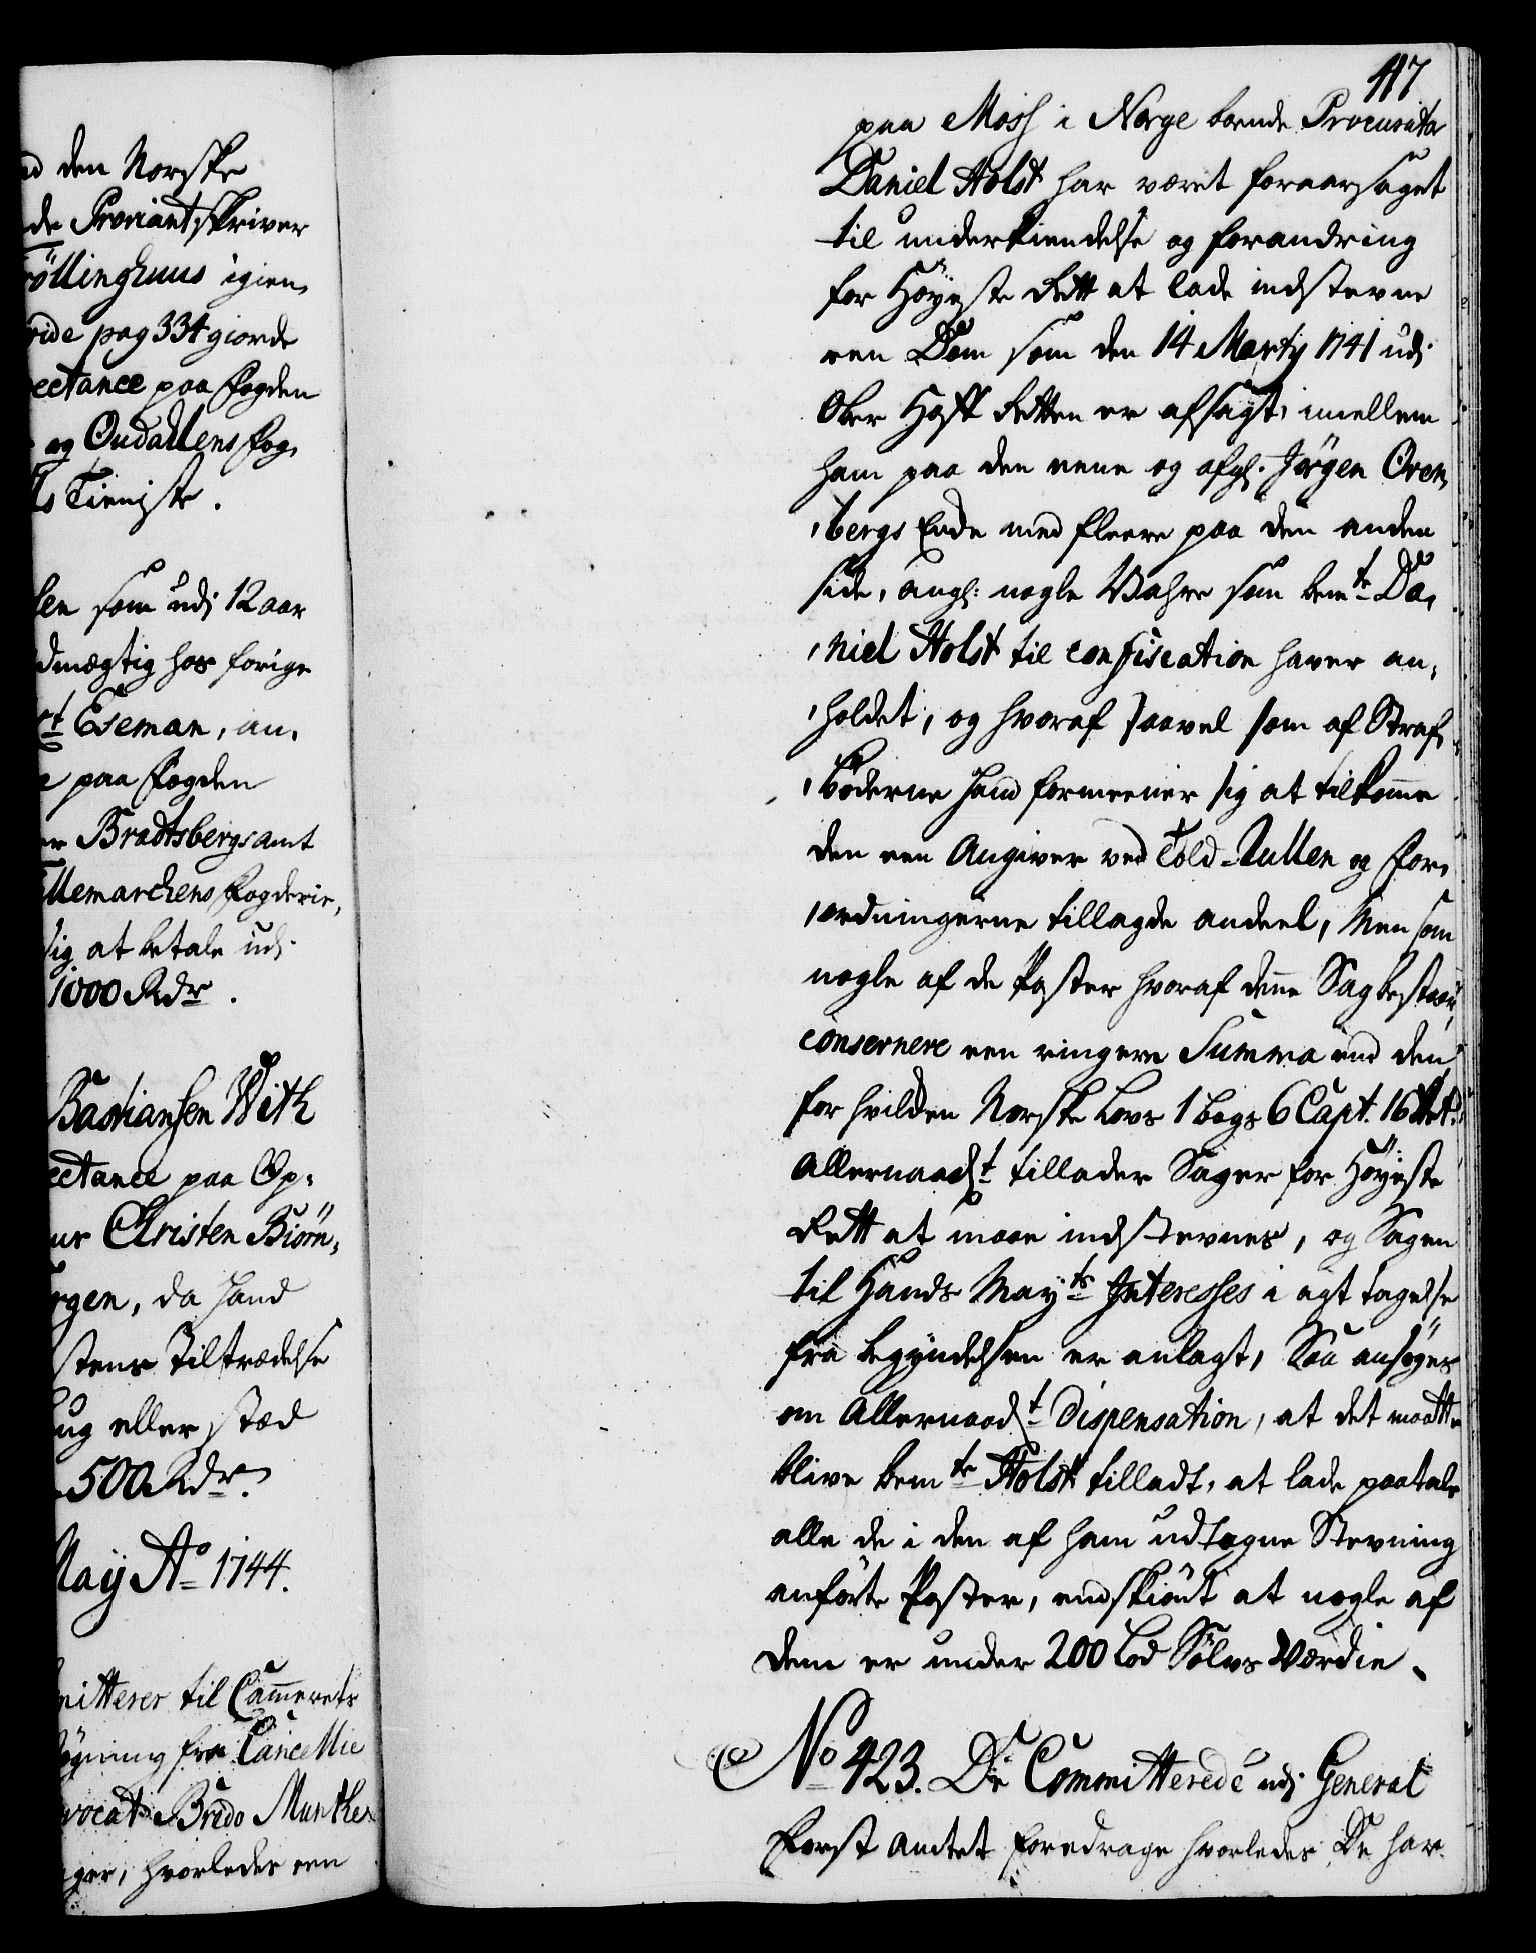 d den Norske
de Proviantskriver
röllinghuus igien,
ride pag 334 giorde
ectance paa Fogden
og Oudallens Fog,
ts Tieniste.
len som udj 12 aar
dmægtig hos forige
rt Eseman, an,
e paa Fogden
er Bradtsbergs amt
llemarckens Fogderie,
sig at betale udj
1000 Rdr.
Bastiansen With
ectance paa Op,
ur Christen Biörn,
rgen, da hand
stens Tiltrædelse
ug eller stæd
500 Rdr.
May Ao 1744.
mitterer til Cammerets
øgning fra Cancellie
vocat Bredo Munthe
ger, hvorledes een
117
paa Moss i Norge boende Procurator
Daniel Holst har været foraarsaget
til underkiendelse og forandring
for Höyeste Rett at lade indstevne
een Dom som den 14 Martij 1741 udj
Ober Hoff Retten er afsagt, imellem
ham paa den eene og afgl. Jörgen Oren,
,bergs Enke med fleere paa den anden
side, angl: nogle Wahre som bemte Da,
,niel Holst til confiscation haver an,
,holdet, og hvoraf saavel som af Straf,
,böderne hand formeener sig at tilkomme
den een Angiver ved Told-Rullen og For,
,ordningerne tillagde andeel, Men som
nogle af de Poster hvoraf denne Sag bestaar,
consernere een ringere Summa end den
for hvilcken Norske Lovs 1 bogs 6 Capt. 16 Art:
Allernaadst tillader Sager for Höyeste
Rett at maae indstevnes, og Sagen
til Hands Mayts Interesses i agt tagelse
fra begyndelsen er anlagt, Saa ansöges
om Allernaadst Dispensation, at det maatte
blive bemte Holst tilladt, at lade paatale
alle de i den af ham udtagne Stevning
anförte Poster, endskiönt at nogle af
dem er under 200 Lod Sölvs Værdie.
No 423. De Committerede udj General
Forst Amtet foredrage hvorledes De har